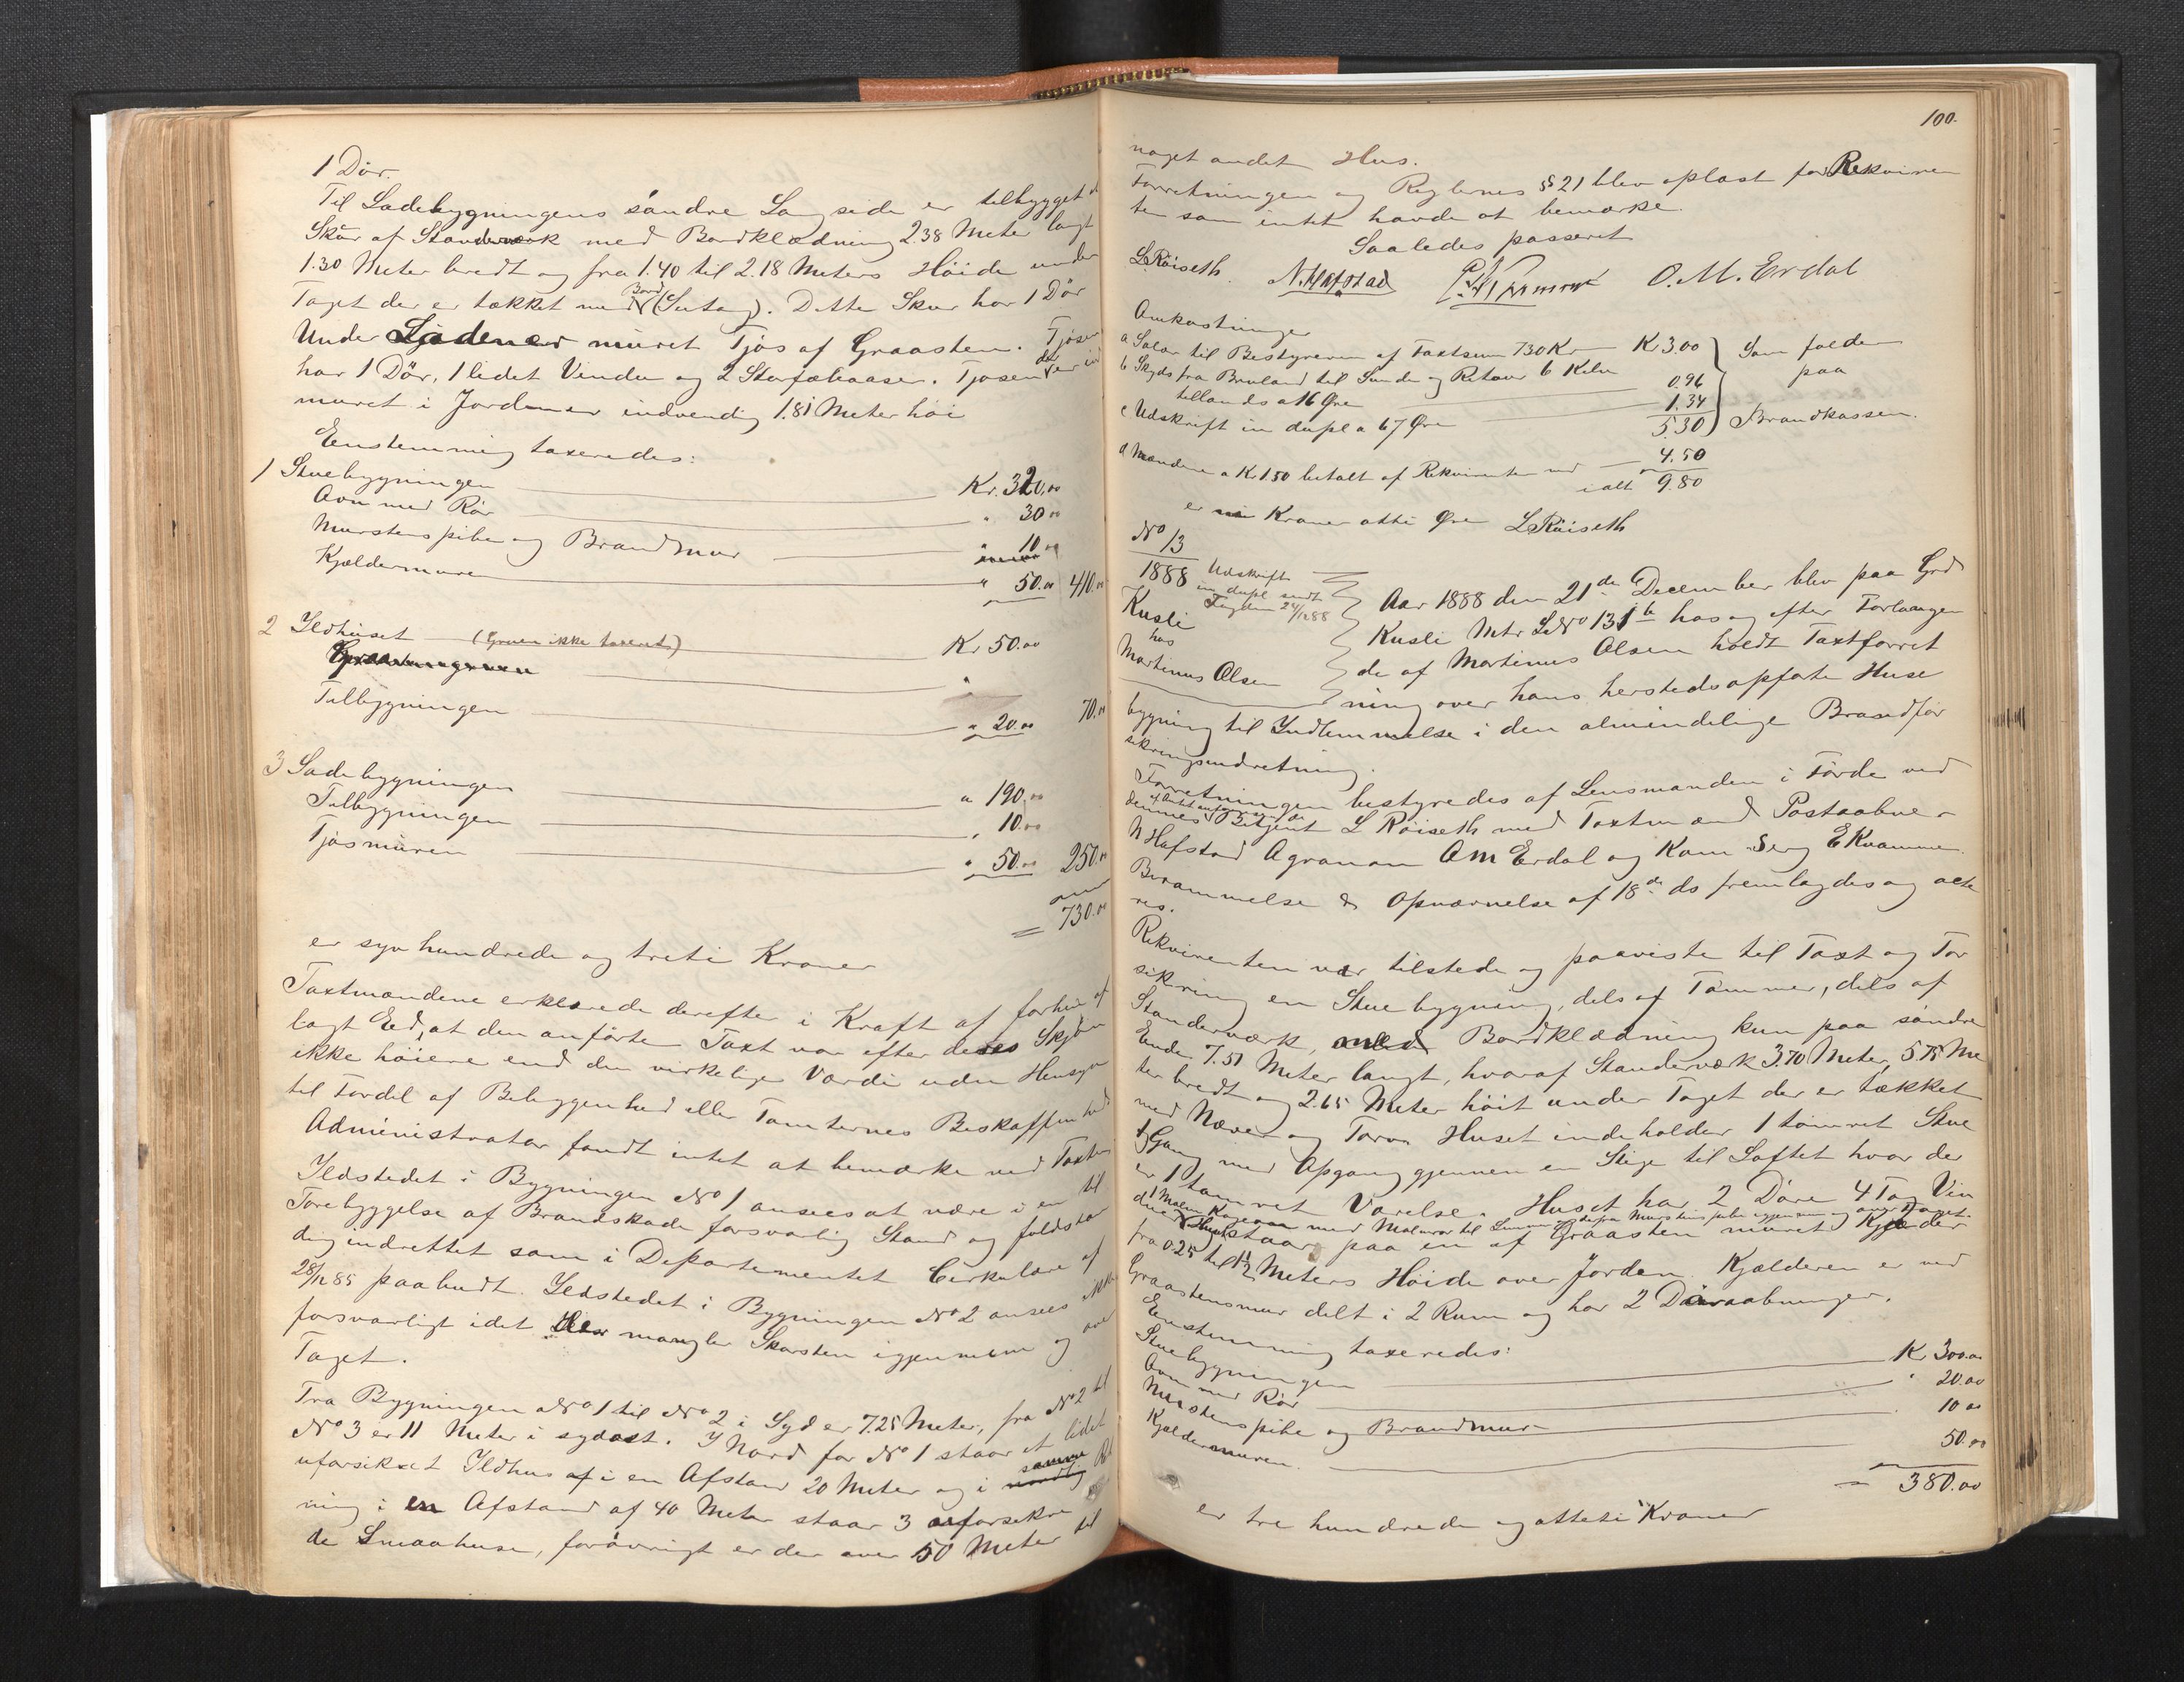 1 Dör.
Til Ladebygningens söndre Langside er tilbygget et
Skur af Standerværk med Bordklædning 2.38 Meter langt
1.30 Meter bredt og fra 1.40 til 2.18 Meters Höide under
Taget der er tækket med Bord (Sutag). Dette Skur har 1 Dör
Under Laden er müret Fjös af Graasten. Fjösen
har 1 Dör, 1 lidet Vindu og 2 Storfebaase. Fjösen der er ind
muret i Jorden er indvendig 1.81 Meter höi
Eenstemmig taxeredes:
1 Stuebygningen Kr. 320.00
Ovn med Rör " 30.00
Murstenspibe og Brandmur " 10.00
Kjældermuren " 50.00 410.00
2 Ildhuset (Gruen ikke taxeret) Kr 50.00
Tilbygningen " 20.00 70.00
3 Ladebygningen " 190.00
Tilbygningen " 10.00
Fjösmüren " 50.00 250.00
= 730.00
er syv hundrede og treti Kroner
Taxtmændene erklærede derefter i Kraft af forhen af
lagt Eed, at den anförte Taxt var efter deres Skjön
ikke höiere end den virkelige Værdi uden Hensyn
til Fordel af Beliggenhed eller Tomternes Beskaffenhed
Administrator fandt intet at bemærke ved Taxten
Ildstedet i Bygningen No 1 ansees at være i en til
Forebyggelse af Brandskade forsvarlig Stand og foldstæn
dig indrettet som i Departementet Cirkulære af
28/12 85 paabudt. Ildstedet i Bygningen No 2 ansees ikke
forsvarligt idet der mangler Skorsten igjennem og over
Taget.
Fra Bygningen No 1 til No 2 i Syd er 7.25 Meter, fra No 2 til
No 3 er 11 Meter i sydost. I Nord for No 1 staar et lidet
uforsikret Ildhus i en Afstand 20 Meter og i samme Ret
ning i en Afstand af 40 Meter staar 3 uforsikre
de Smaahuse, forövrigt er der over 50 Meter til
100.
noget andet Hus.
Forretningen og Reglernes § 21 blev oplæst for Rekviren
ten som intet havde at bemærke.
Saaledes passeret
L Röiseth. N. Hafstad O. M. Erdal
Omkostninger
a Salær til Bestyreren af Taxtsum 730 Kr Kr 3.00 Som falder
b Skyds fra Bruland til Sunde og Retour 6 Kilm paa
tillands a 16 Øre 0.96
c Udskrift in dupl a 67 Øre 1.34 Brandkassen.
5.30
d Mændene a Kr 1.50 betalt af Rekvirenten med 4.50
ialt 9.80
er ni Kroner otti Øre L Röiseth
No 13
1888 Udskrift
in dupl sendt
Fogden 24/12 88
Kusli
hos
Martinus Olsen
Aar 1888 den 21de December blev paa Grd
Kusli Mtr LNo 131b hos og efter Forlangen
de af Martinus Olsen holdt Taxtforret
ning over hans herstedsopförte Huse
bygning til Indlemmelse i den almindelige Brandfor
sikringsindretning.
Forretningen bestyredes af Lensmanden i Förde ved
dennes af Amtet antagne Betjent L Röiseth med Taxtmænd Postaabner
N Hafstad Agronom O M Erdal og Kom Serg E Kvamme.
Berammelse & Opnævnelse af 18de ds fremlagdes og acte
res.
Rekvirenten var tilstede og paaviste til Taxt og For
sikring en Stuebygning, dels af Tömmer, dels af
Standerværk, med Bordklædning kun paa söndre
Ende 7.51 Meter langt, hvoraf Standerværk 3.70 Meter, 5.75 Me
ter bredt og 2.65 Meter höit under Taget der er tækket
med Næver og Torv. Huset indeholder 1 tömret Stue
1 Gang med Opgang gjennem en Stige til Loftet hvor der
er 1 tömret Værelse. Huset har 2 Döre 4 Fag Vin
duer 1 Malm Kogeovn med Malmrör til Murstenspibe igjennem og over Taget.
Huset staar paa en af Graasten müret Kjælder
fra 0.25 til 1½ Meters Höide over Jorden. Kjælderen er ved
Graastensmur delt i 2 Rum og har 2 Döraabninger.
Enstemmig taxeredes:
Stuebygningen Kr 300.00
Ovn med Rör " 20.00
Murstenspibe og Brandmur 10.00
Kjældermuren. 50.00
= 380.00
er tre hundrede og otteti Kroner